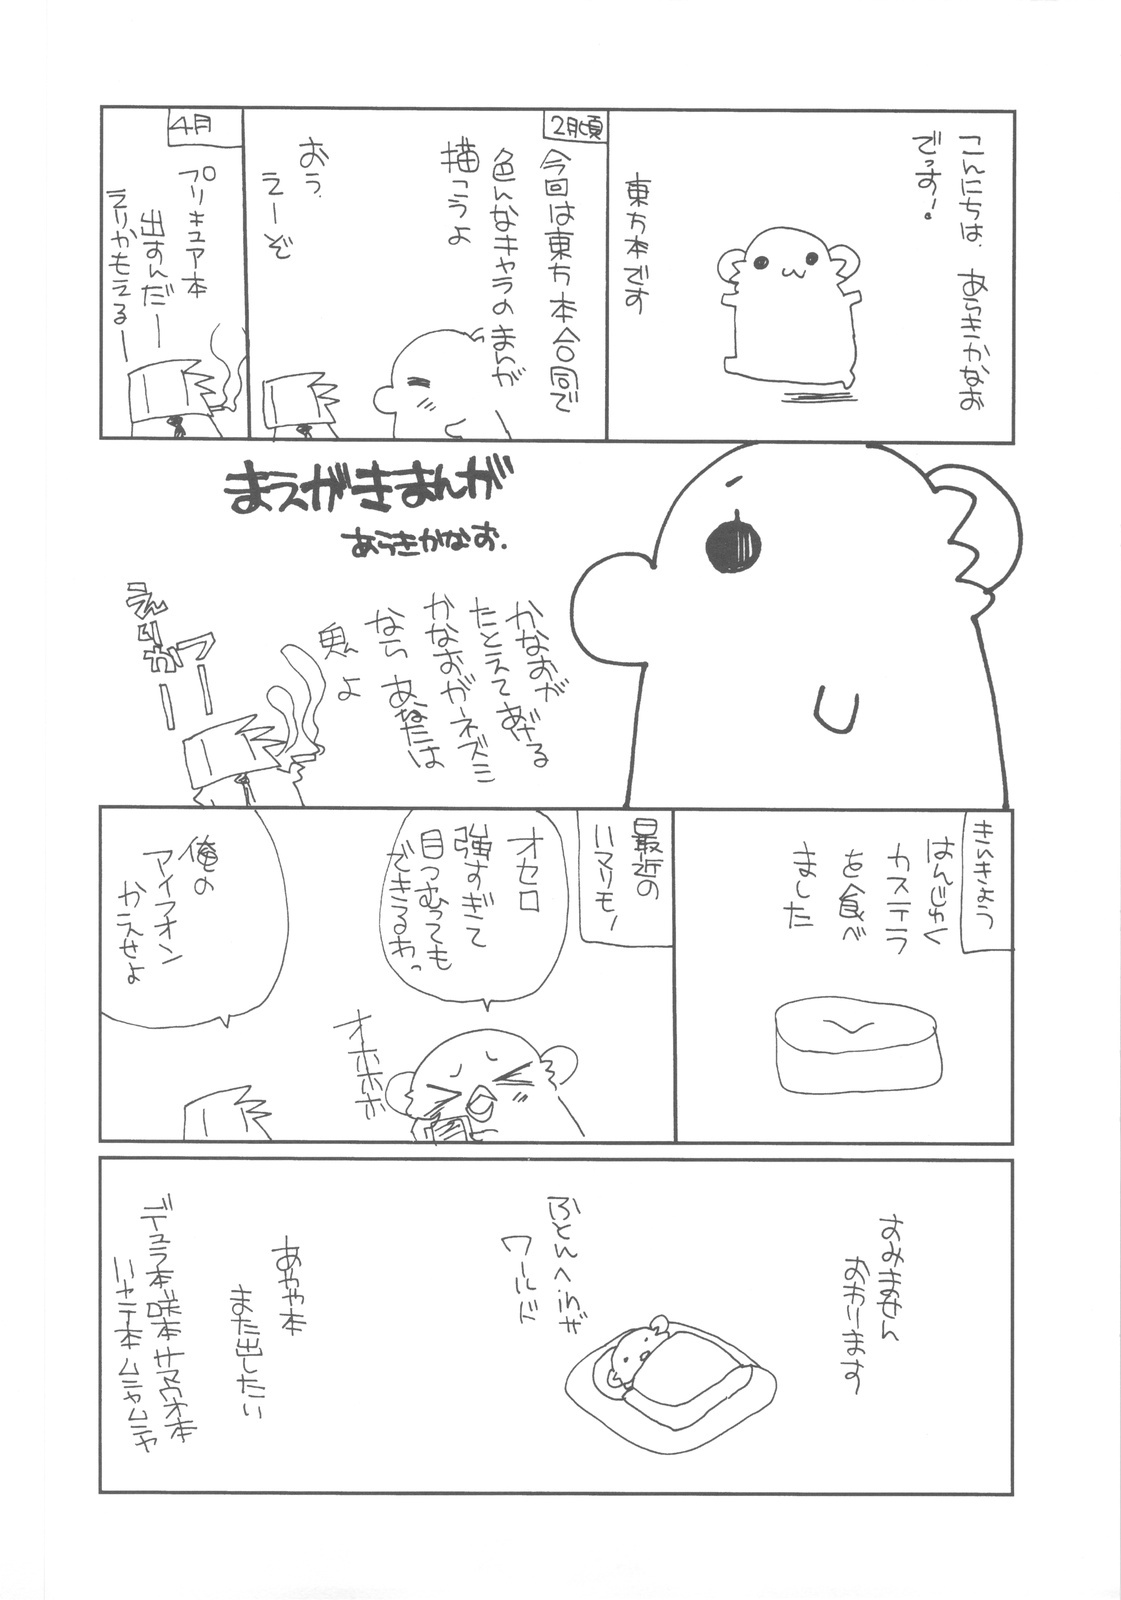 こんにちは、あらきかなお
でっす!
東方本です
2月頃
今回は東方本合同で
色んなキャラのまんが
描こうよ
おう、
えーぞ
4月
プリキュア本
出すんだー
えりかもえるー
まえがきまんが
あらきかなお.
かなおが
たとえてあげる
かなおがネズミ
なら あなたは
魚よ
えりかー
つーー
きんきょう
はんじゅく
カステラ
を食べ
ました
最近の
ハマリモノ
オセロ
強すぎて
目つむっても
できるわっ
オホホホホ
俺の
アイフォン
かえせよ
すみません
おわります
ふとんへinザ
ワールド
あやや本
また出したい
デュラ本咲本サマウオ本
ハヤテ本ムニャムニャ